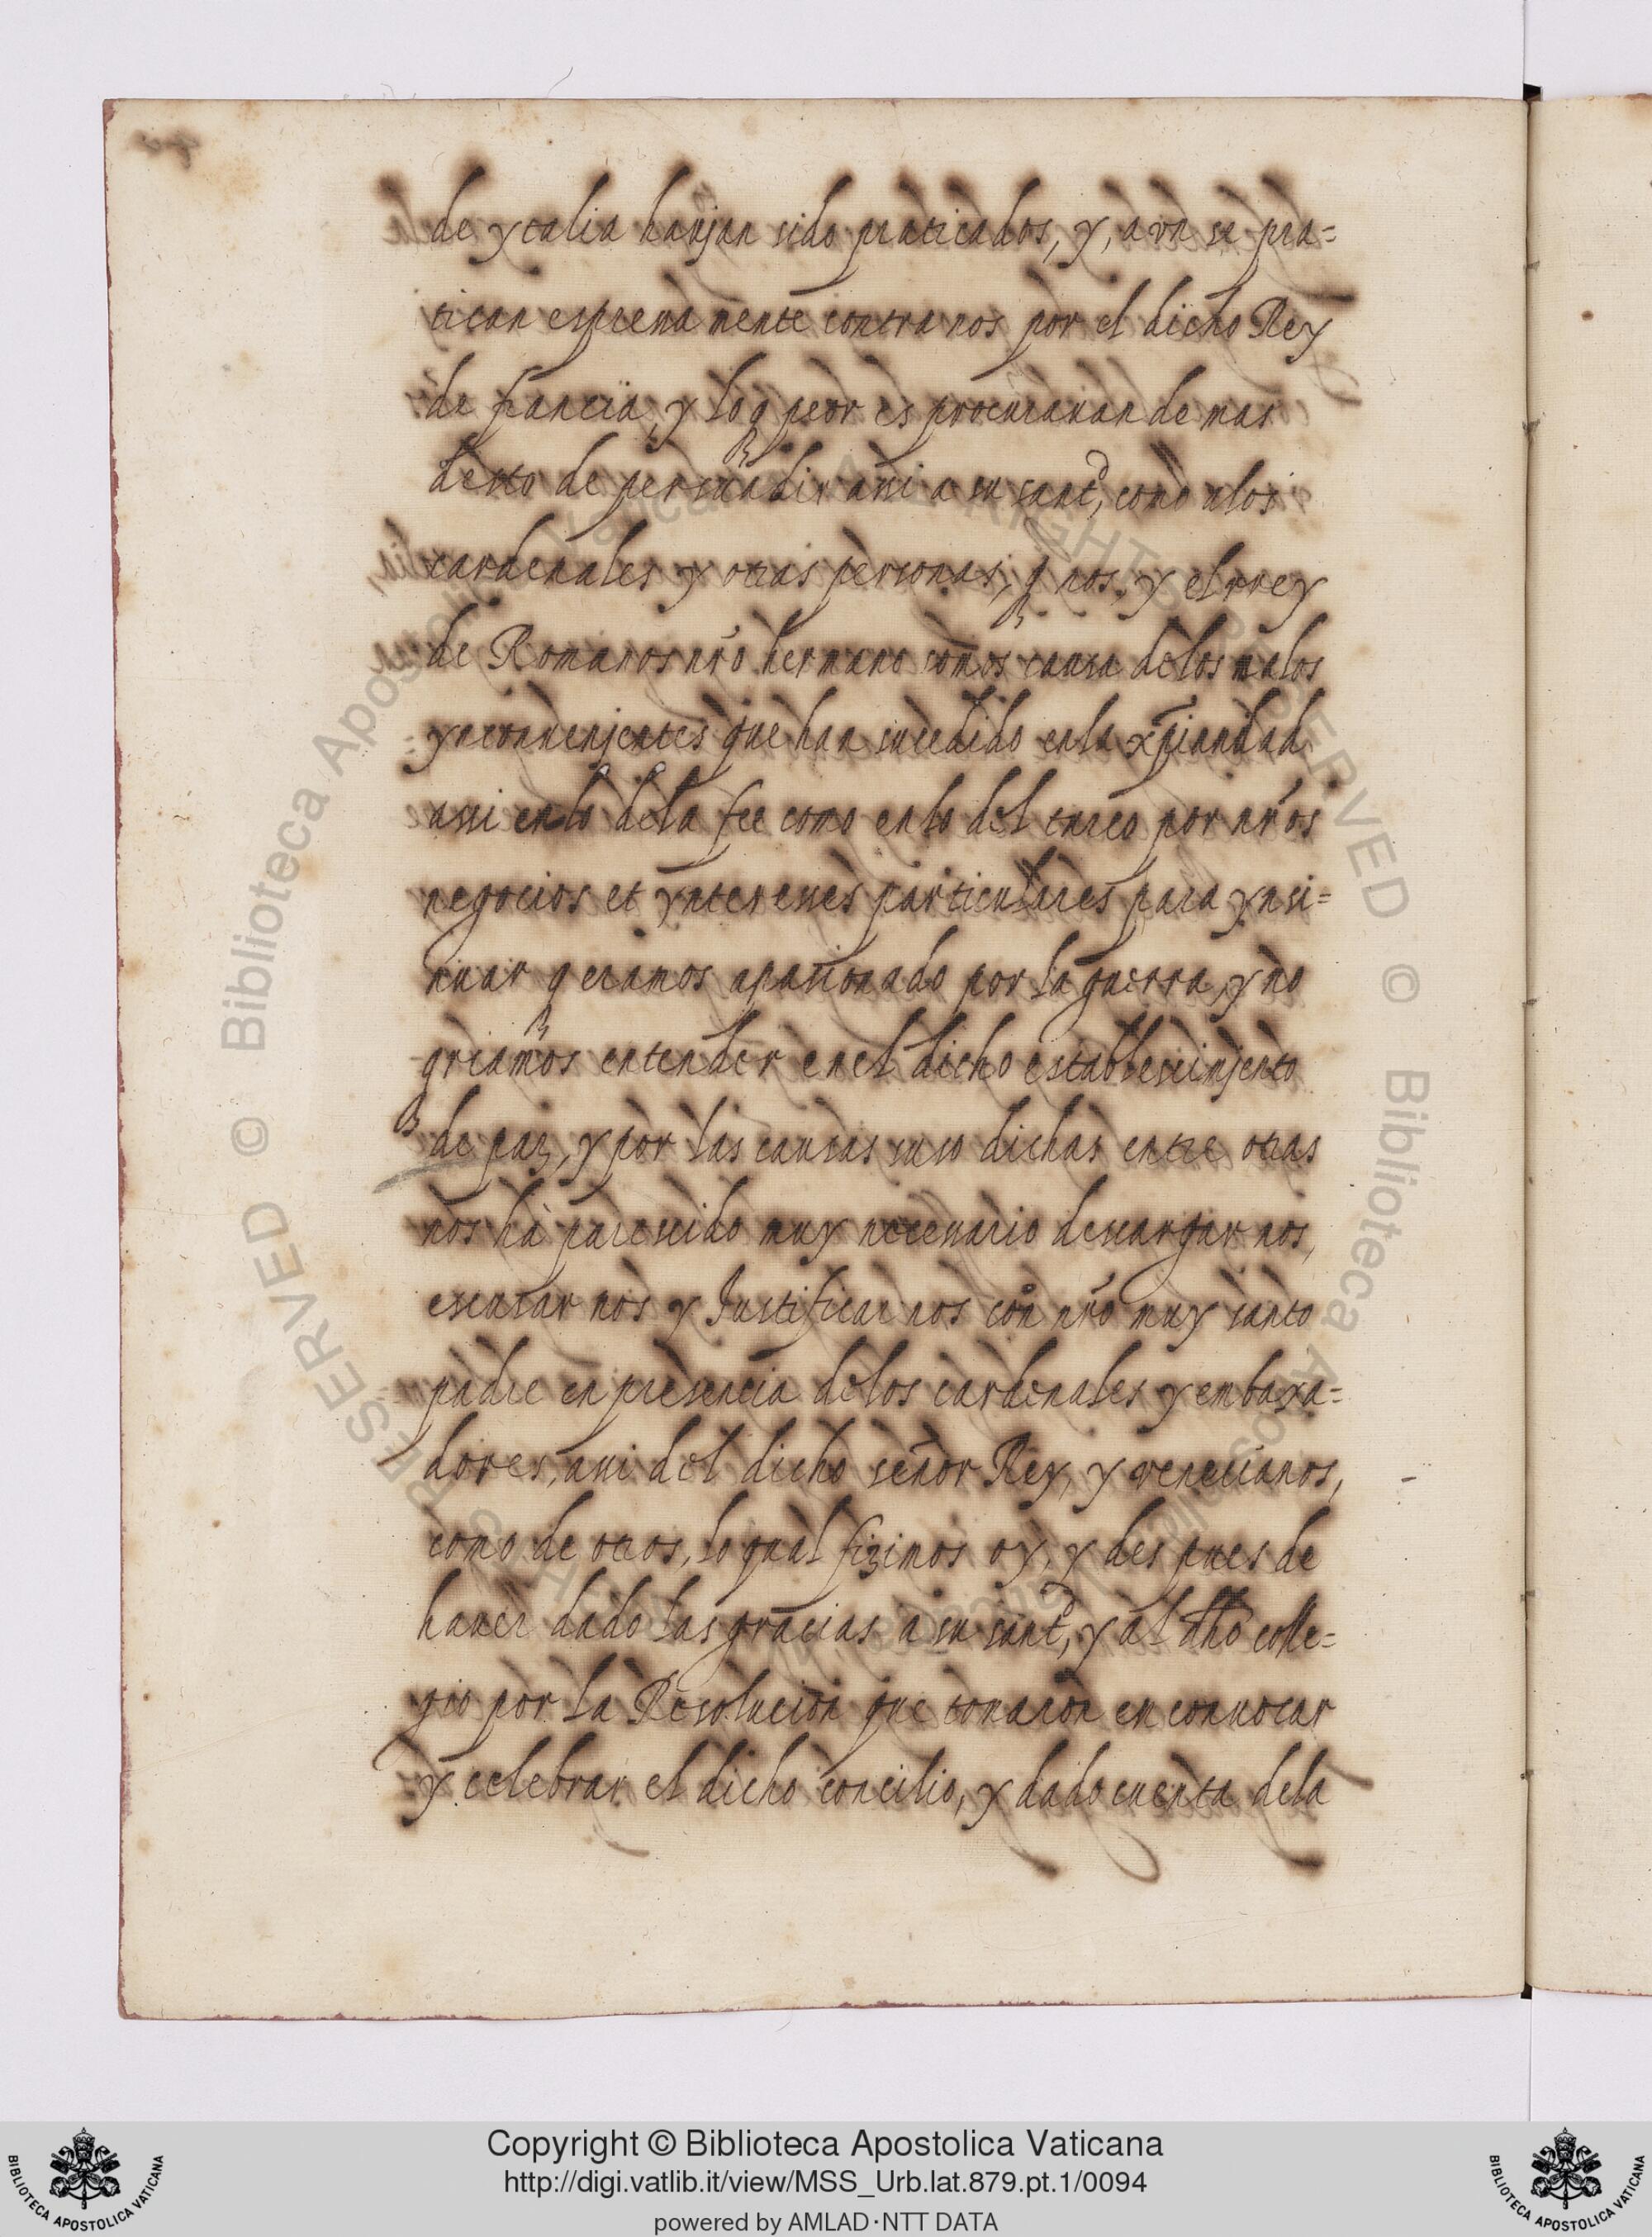 de ytalia haujan sido praticados, y, avn se pra=
tican espresamente contra nos por el dicho Rey
de francia, y lo q peor es procurauan demas
desto de persuadir assi a su santd, como a los
cardenales y otras personas, q nos, y el rrey
de Romanos nr̃o hermano somos causa delos malos
ynconuenjentes que han sucedido enla xp̃iandad
assi enlo dela fee como enlo del turco por nr̃os
negocios et ynteresses particulares para ynsi=
nuar q eramos apasionado por la guerra, y no
q̃riamos entender enel dicho establescimjento
de paz, y por las causas suso dichas entre otras
nos ha parescido muy necessario descargar nos,
escusar nos y Justificar nos con nr̃o muy santo
padre en presencia delos cardenales y embaxa=
dores, assi del dicho señor Rey, y venecianos,
como de otros, lo qual fizimos oy, y despues de
hauer dado las gracias a su santd, y al dho colle=
gio por la Resolucion que tomaron en conuocar
y celebrar el dicho concilio, y dado cuenta dela
Copyright © Biblioteca Apostolica Vaticana
http://digi.vatlib.it/view/MSS_Urb.lat.879.pt.1/0094
powered by AMLAD·NTT DATA